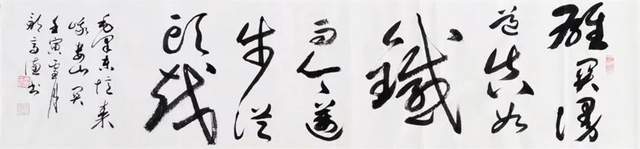 雄关漫
道真如
鐵
而今邁
步從
頭越
毛澤東憶秦
娥婁山关
壬寅月
书